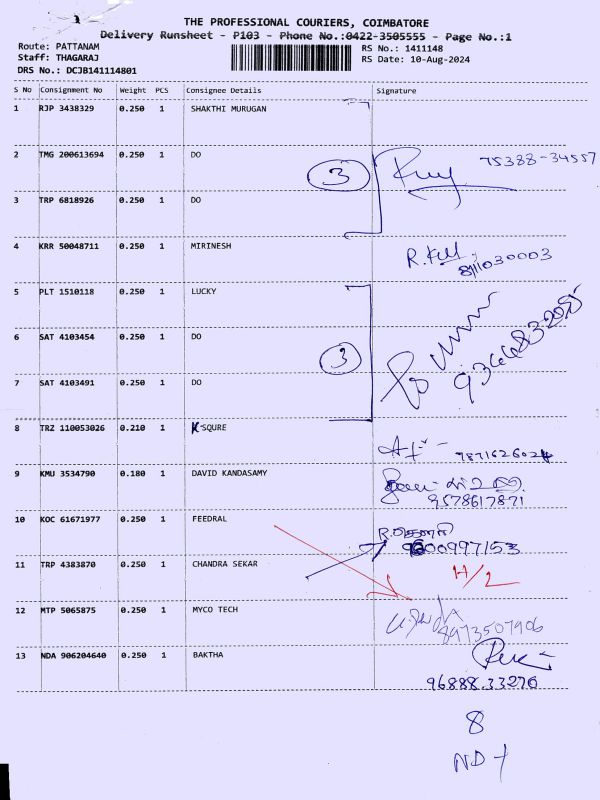 THE PROFESSIONAL COURIERS, COIMBATORE
Delivery Runsheet - P103 - Phone No.:0422-3505555 - Page No.:1
Route: PATTANAM
RS No.: 1411148
Staff: THAGARAJ
RS Date: 10-Aug-2024
DRS No.: DCJB141114801
S No Consignment No Weight PCS Consignee Details Signature
1 RJP 3438329 0.250 1 SHAKTHI MURUGAN
2 TMG 200613694 0.250 1 DO 3 75388-34557
3 TRP 6818926 0.250 1 DO
4 KRR 50048711 0.250 1 MIRINESH
8111030003
5 PLT 1510118 0.250 1 LUCKY
6 SAT 4103454 0.250 1 DO 3
7 SAT 4103491 0.250 1 DO
8 TRZ 110053026 0.210 1 K-SQURE
9 KMU 3534790 0.180 1 DAVID KANDASAMY
9578617871
10 KOC 61671977 0.250 1 FEEDRAL
9600997153
11 TRP 4383870 0.250 1 CHANDRA SEKAR H/2
12 MTP 5065875 0.250 1 MYCO TECH
8973507906
13 NDA 906204640 0.250 1 BAKTHA
96888 33270
8
ND